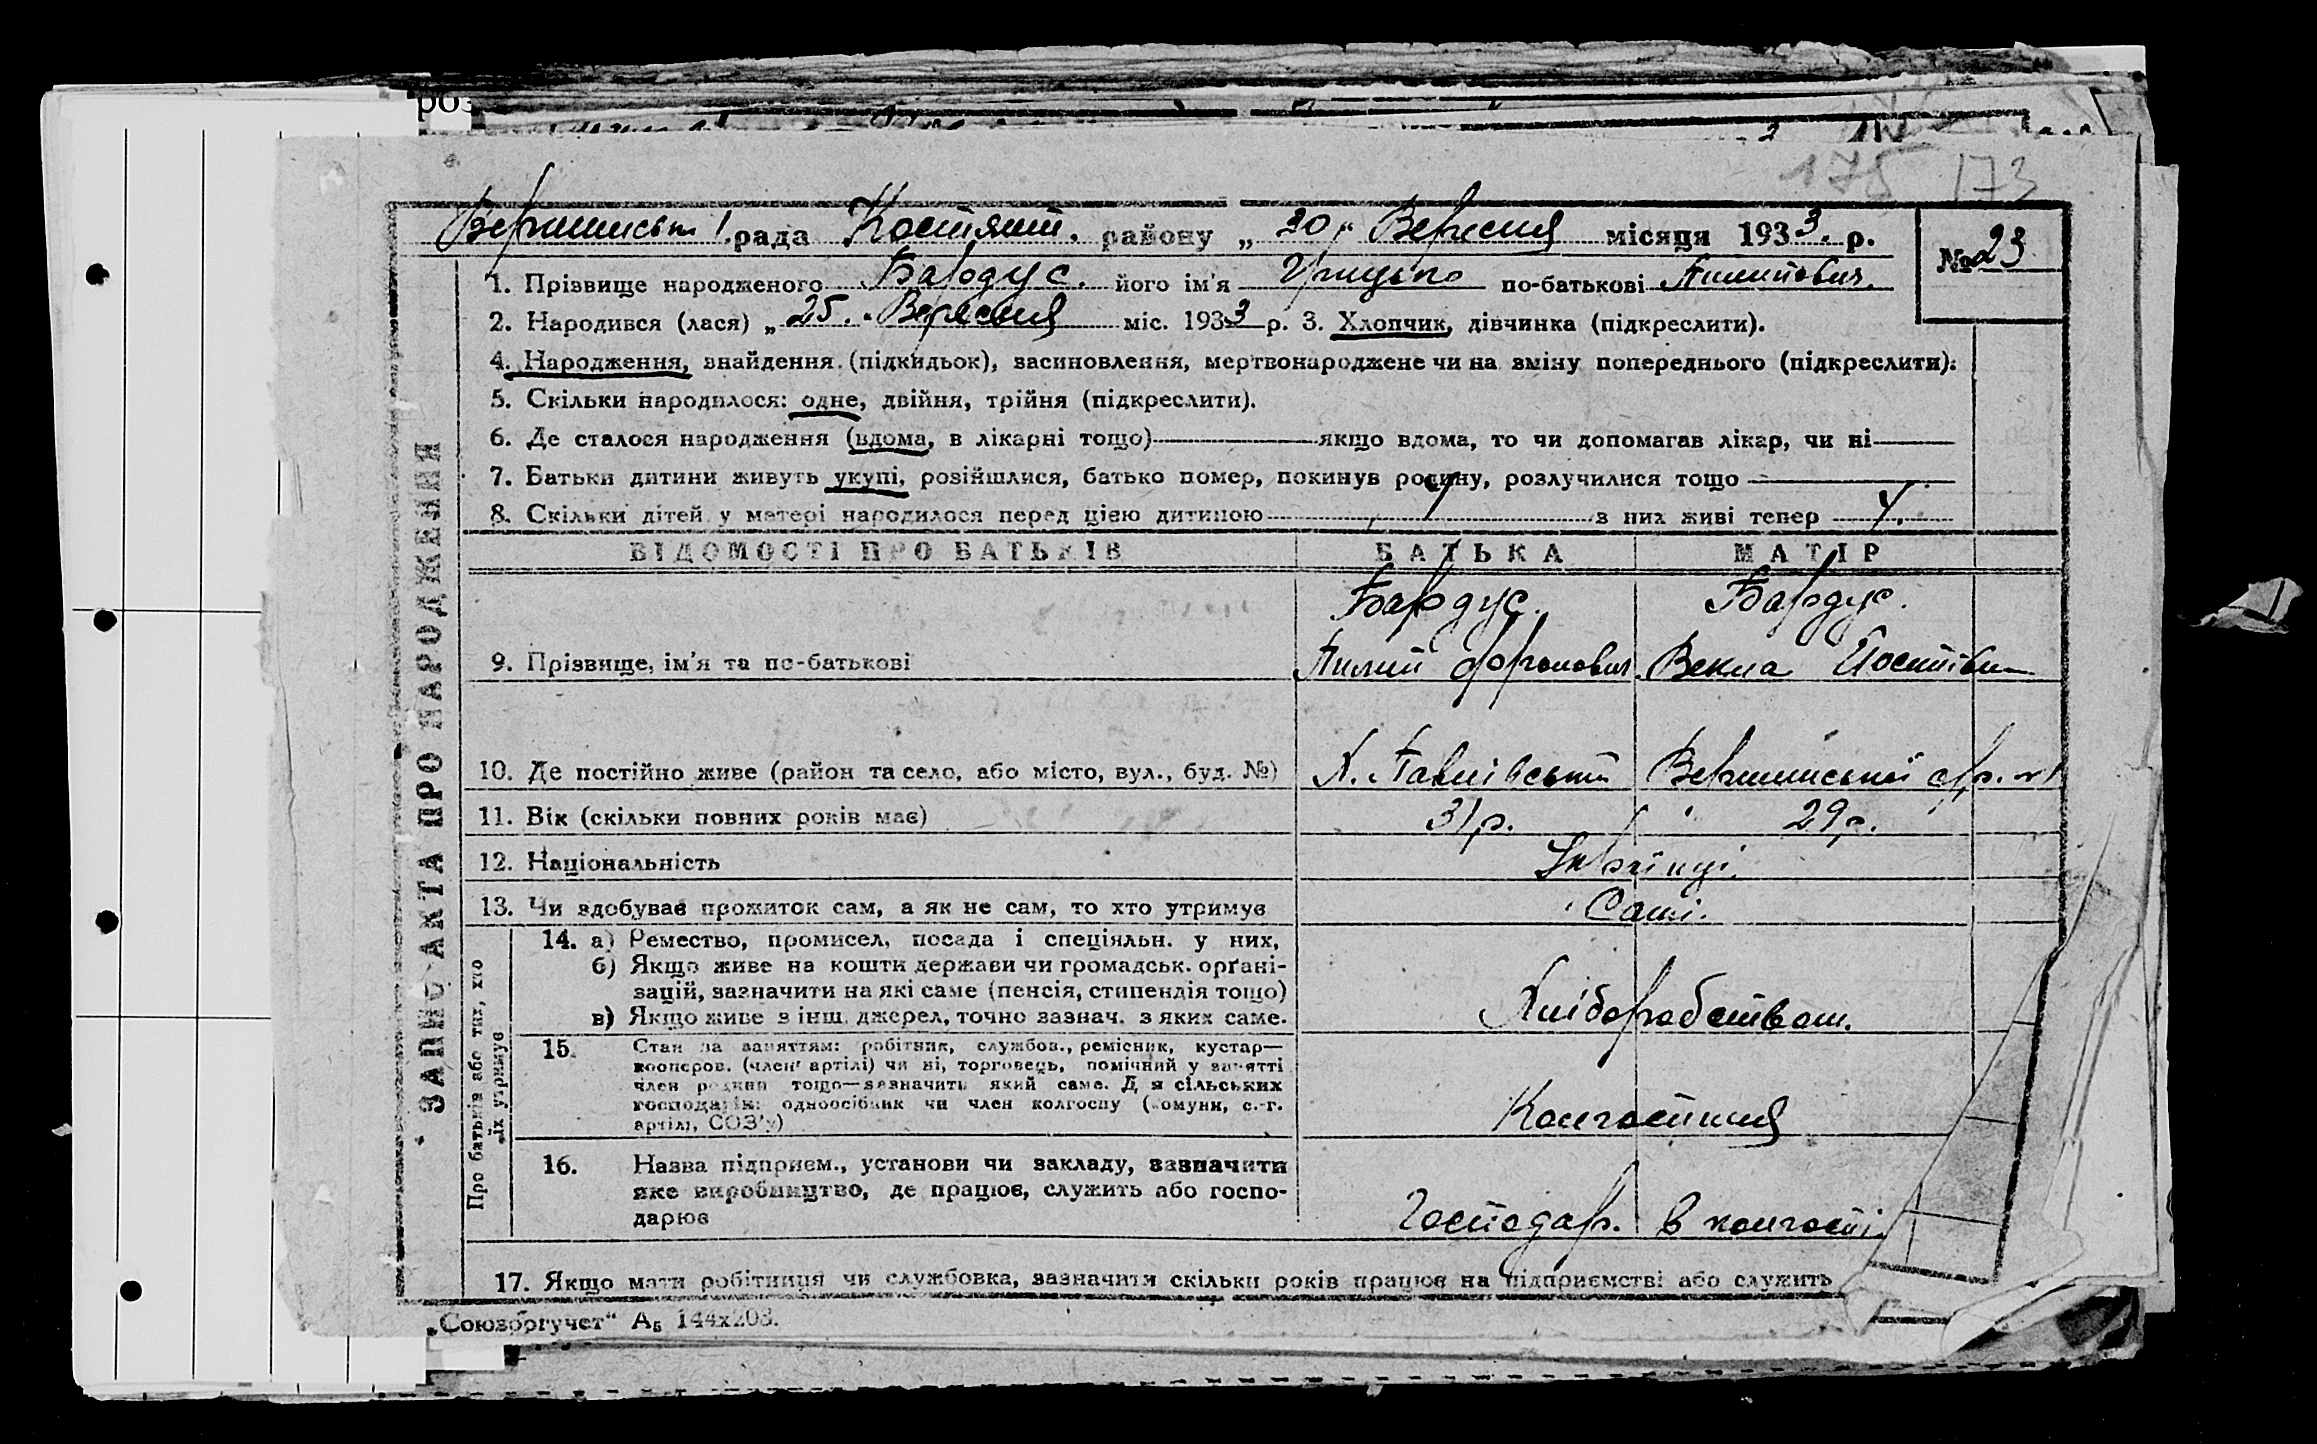 роз
175 173
Вершинська рада Костянт. району „30" Вересня місяця 1933. р.
№ 23
1. Прізвище народженого Бардус. його ім'я Грицько по-батькові Пилипович.
2. Народився (лася) „25." Вересня міс. 1933 р. 3. Хлопчик, дівчинка (підкреслити).
4. Народження, знайдення (підкидьок), засиновлення, мертвонароджене чи на зміну попереднього (підкреслити):
5. Скільки народилося: одне, двійня, трійня (підкреслити).
6. Де сталося народження (вдома, в лікарні тощо) якщо вдома, то чи допомагав лікар, чи ні
7. Батьки дитини живуть укупі, розійшлися, батько помер, покинув родину, розлучилися тощо
8. Скільки дітей у матері народилося перед цією дитиною 4 з них живі тепер 4.
ЗАПИС АКТА ПРО НАРОДЖЕННЯ
ВІДОМОСТІ ПРО БАТЬКІВ БАТЬКА МАТІР
Бардус. Бардус.
9. Прізвище, ім'я та по-батькові Пилип Векла
10. Де постійно живе (район та село, або місто, вул., буд. №) Х. Павлівський Вершинської с/р.
11. Вік (скільки повних років має) 31 р. 29 р.
12. Національність Українці.
13. Чи здобуває прожиток сам, а як не сам, то хто утримує Самі.
Про батьків або тих, хто їх утримує
14. а) Ремество, промисел, посада і спеціяльн. у них,
б) Якщо живе на кошти держави чи громадськ. орґані-
зацій, зазначити на які саме (пенсія, стипендія тощо)
в) Якщо живе з інш. джерел, точно зазнач. з яких саме. Хліборобством.
15. Стан за заняттям: робітник, службов., ремісник, кустар—
кооперов. (член артілі) чи ні, торговець, помічний у занятті
член родини тощо—зазначити який саме. Для сільських
господарів: одноосібник чи член колгоспу (комуни, с.-г.
артілі, СОЗ'у) Колгоспник
16. Назва підприєм., установи чи закладу, зазначити
яке виробництво, де працює, служить або госпо-
дарює Господар. в колгоспі.
17. Якщо мати робітниця чи службовка, зазначити скільки років працює на підприємстві або служить
„Союзоргучет" А₅ 144х203.